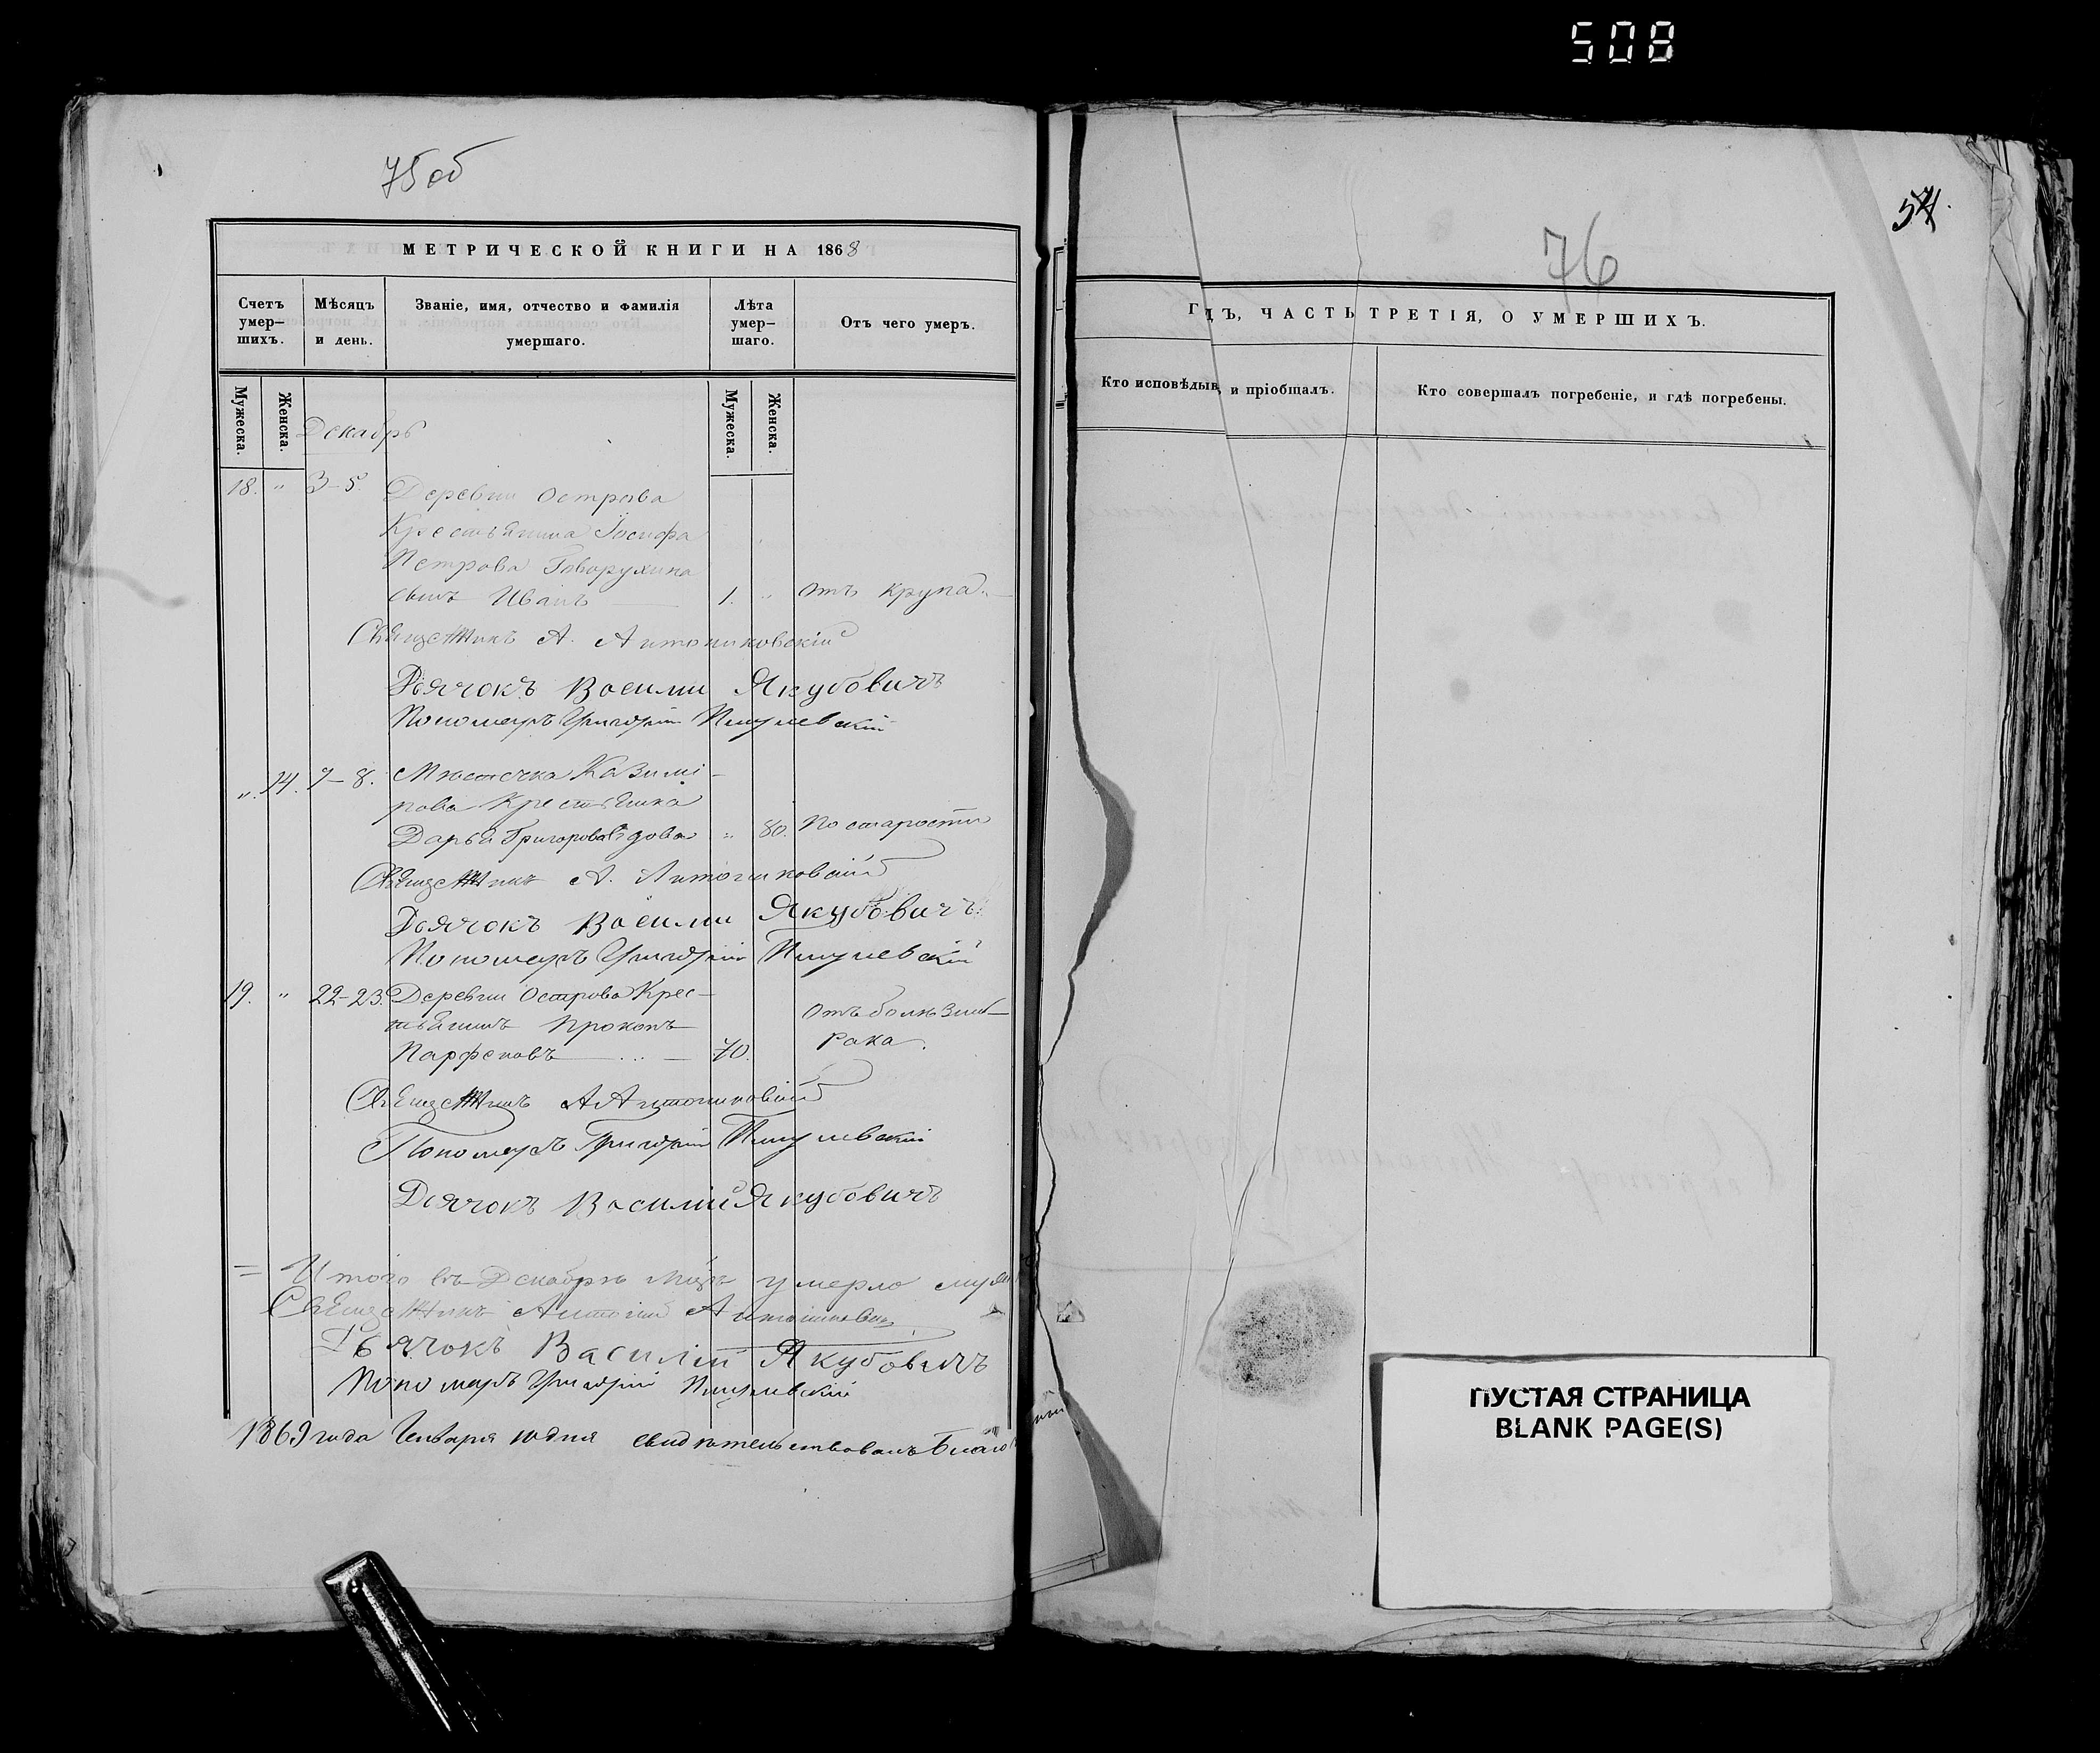 508
75 об
МЕТРИЧЕСКОЙ КНИГИ НА 1868
Счетъ умер–шихъ.
Мѣсяцъ и день.
Званіе, имя, отчество и фамилія умершаго.
Лѣта умер–шаго.
Отъ чего умеръ.
Мужеска.
Женска.
Мужеска.
Женска.
Декабрь
18. " 3–5. Деревни Острова
Крестьянина Іосифа
Петрова Говорухина
сынъ Иванъ — 1. " отъ крупа.
Священникъ А.
Дьячокъ Василій Якубовичъ
Пономарь Григорій
". 14. 7–8. Мѣстечка Казимі–
рова Крестьянка
Дарья Григорова вдова " 80. По старости
Священникъ А.
Дьячокъ Василій Якубовичъ
Пономарь Григорій
19. " 22–23. Деревни Острова Крес–
тьянинъ Прокопъ
Парфеновъ — 70. отъ болѣзни
рака.
Священникъ А
Пономарь Григорій
Дьячокъ Василій Якубовичъ
Итого въ Декабрѣ мцѣ умерло муж
Священникъ Антоній
Дьячокъ Василій Якубовичъ
Пономарь Григорій
1869 года Января 10 дня свидѣтельствовалъ Благо
76
ГДЪ, ЧАСТЬ ТРЕТІЯ, О УМЕРШИХЪ.
Кто исповѣдыв и пріобщалъ.
Кто совершалъ погребеніе, и гдѣ погребены.
ПУСТАЯ СТРАНИЦА
BLANK PAGE(S)